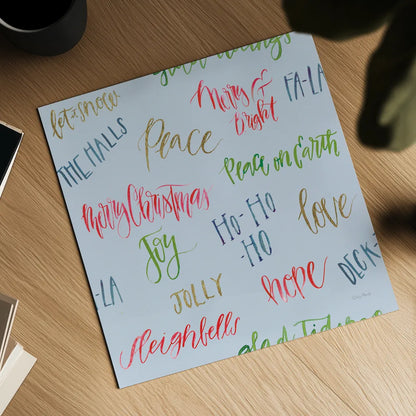 glad tidings
let it snow
Merry &
bright
FA-LA
THE HALLS
Peace
Peace on Earth
Merry Christmas
HO-HO
-HO
love
Joy
DECK
-LA
JOLLY
hope
Sleighbells
glad Tidings